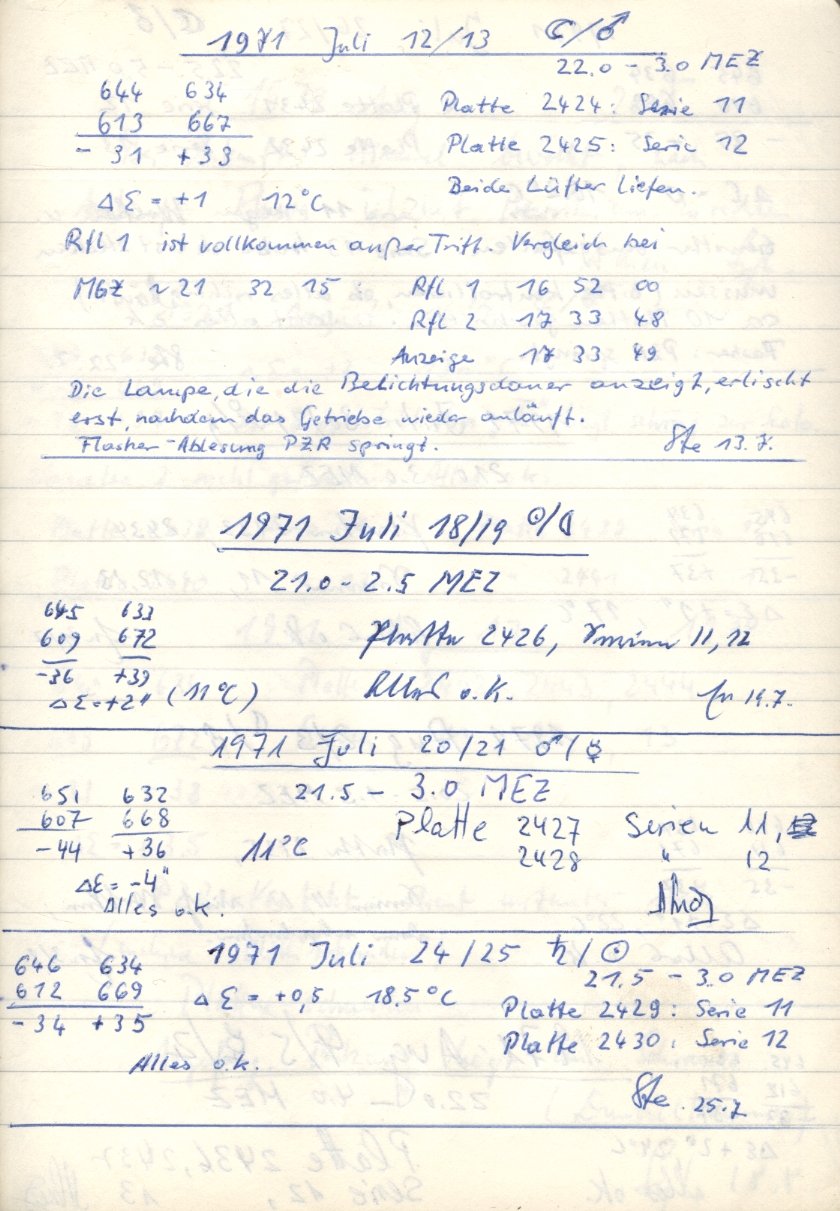 1971 Juli 12/13 ☾/♂
22.0 - 3.0 MEZ
644 634
613 667
- 31 + 33
Platte 2424: Serie 11
Platte 2425: Serie 12
Beide Lüfter liefen.
ΔΣ = +1 12°C
Rfl 1 ist vollkommen außer Tritt. Vergleich bei
MEZ ~ 21 32 15 : Rfl 1 16 52 00
Rfl 2 17 33 48
Anzeige 17 33 49
Die Lampe, die die Belichtungsdauer anzeigt, erlischt
erst, nachdem das Getriebe wieder anläuft.
Flasher-Ablesung PZR springt.
Ste 13.7.
1971 Juli 18/19 ☉/☾
21.0 - 2.5 MEZ
645 633
609 672
-36 +39
ΔΣ=+2" (11°C)
Platte 2426, Serien 11, 12
Alles o.K.
19.7.
1971 Juli 20/21 ♂/☿
21.5 - 3.0 MEZ
651 632
607 668
-44 +36
11°C
Platte 2427 Serien 11,
2428 " 12
Δε = -4"
Alles o.k.
1971 Juli 24/25 ♄/☉
21.5 - 3.0 MEZ
646 634
612 669
- 34 + 35
Δ Σ = +0,5 18.5°C
Platte 2429: Serie 11
Platte 2430: Serie 12
Alles o.k.
Ste. 25.7